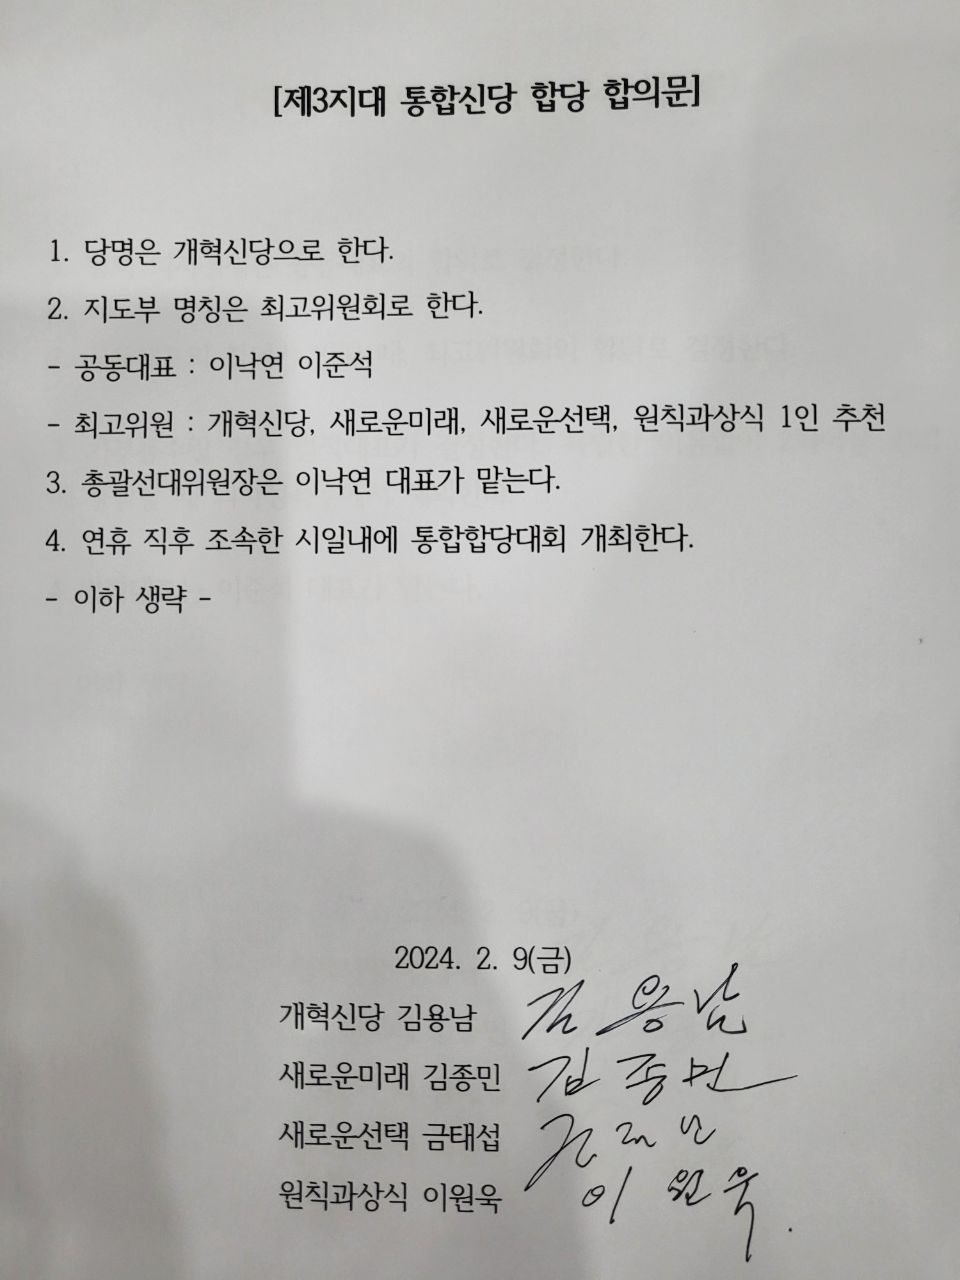 [제3지대 통합신당 합당 합의문]
1. 당명은 개혁신당으로 한다.
2. 지도부 명칭은 최고위원회로 한다.
- 공동대표 : 이낙연 이준석
- 최고위원 : 개혁신당, 새로운미래, 새로운선택, 원칙과상식 1인 추천
3. 총괄선대위원장은 이낙연 대표가 맡는다.
4. 연휴 직후 조속한 시일내에 통합합당대회 개최한다.
- 이하 생략 -
2024. 2. 9(금)
개혁신당 김용남 김용남
새로운미래 김종민 김종민
새로운선택 금태섭
원칙과상식 이원욱 이원욱